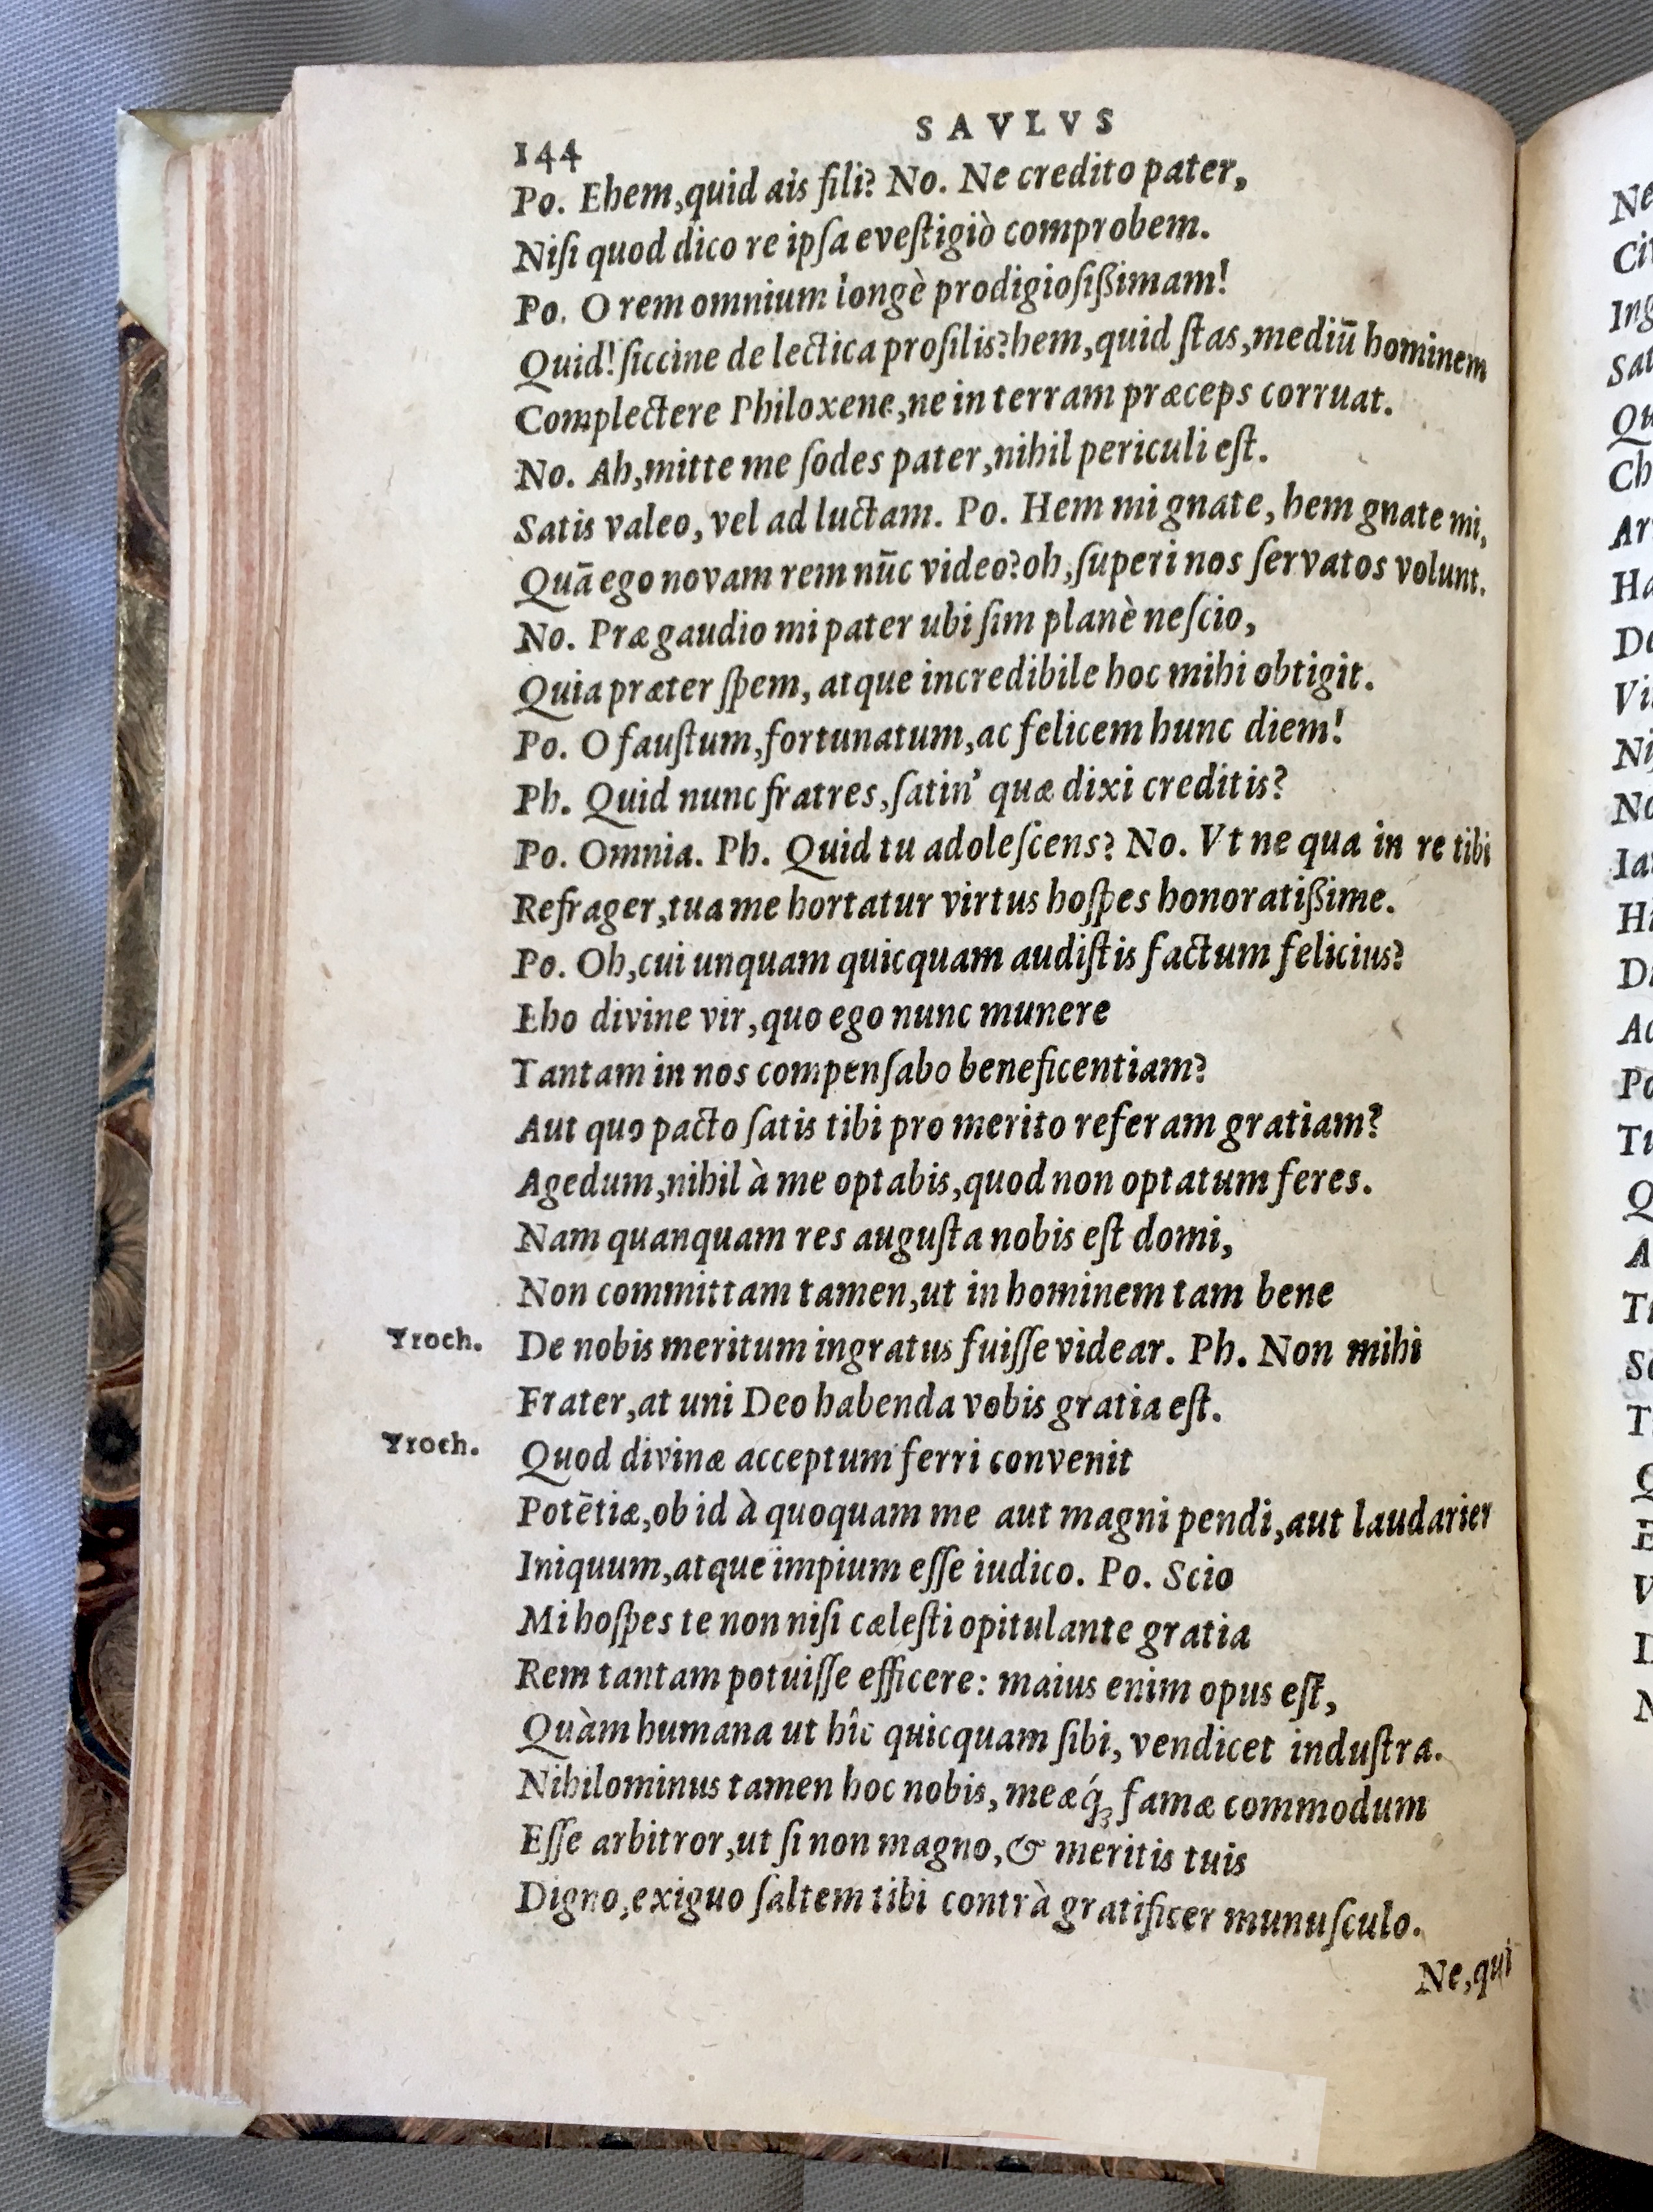 SAVLVS
144
Po. Ehem,quid ais fili? No. Ne credito pater,
Niſi quod dico re ipſa eveſtigiò comprobem.
Po. O rem omnium longè prodigioſißimam!
Quid! ſiccine de lectica proſilis? hem, quid ſtas, mediū hominem
Complectere Philoxene, ne in terram præceps corruat.
No. Ah, mitte me ſodes pater, nihil periculi eſt.
Satis valeo, vel ad luctam. Po. Hem mi gnate, hem gnate mi,
Quā ego novam rem nūc video? oh, ſuperi nos ſervatos volunt.
No. Præ gaudio mi pater ubi ſim planè neſcio,
Quia præter ſpem, atque incredibile hoc mihi obtigit.
Po. O fauſtum, fortunatum, ac felicem hunc diem!
Ph. Quid nunc fratres, ſatin' quæ dixi creditis?
Po. Omnia. Ph. Quid tu adoleſcens? No. Vt ne qua in re tibi
Refrager, tua me hortatur virtus hoſpes honoratißime.
Po. Oh, cui unquam quicquam audiſtis factum felicius?
Eho divine vir, quo ego nunc munere
Tantam in nos compenſabo beneficentiam?
Aut quo pacto ſatis tibi pro merito referam gratiam?
Agedum, nihil à me optabis, quod non optatum feres.
Nam quanquam res auguſta nobis eſt domi,
Non committam tamen, ut in hominem tam bene
Troch. De nobis meritum ingratus fuiſſe videar. Ph. Non mihi
Frater, at uni Deo habenda vobis gratia eſt.
Troch. Quod divinæ acceptum ferri convenit
Potētiæ, ob id à quoquam me aut magni pendi, aut laudarier
Iniquum, atque impium eſſe iudico. Po. Scio
Mi hoſpes te non niſi cæleſti opitulante gratia
Rem tantam potuiſſe efficere: maius enim opus eſt,
Quàm humana ut hîc quicquam ſibi, vendicet induſtra.
Nihilominus tamen hoc nobis, meæq́ꝫ famæ commodum
Eſſe arbitror, ut ſi non magno, & meritis tuis
Digno, exiguo ſaltem tibi contrà gratificer munuſculo.
Ne, qui
Ne
Ing
Qu
Ch
Ha
De
No
Po
Q
A
T
Q
V